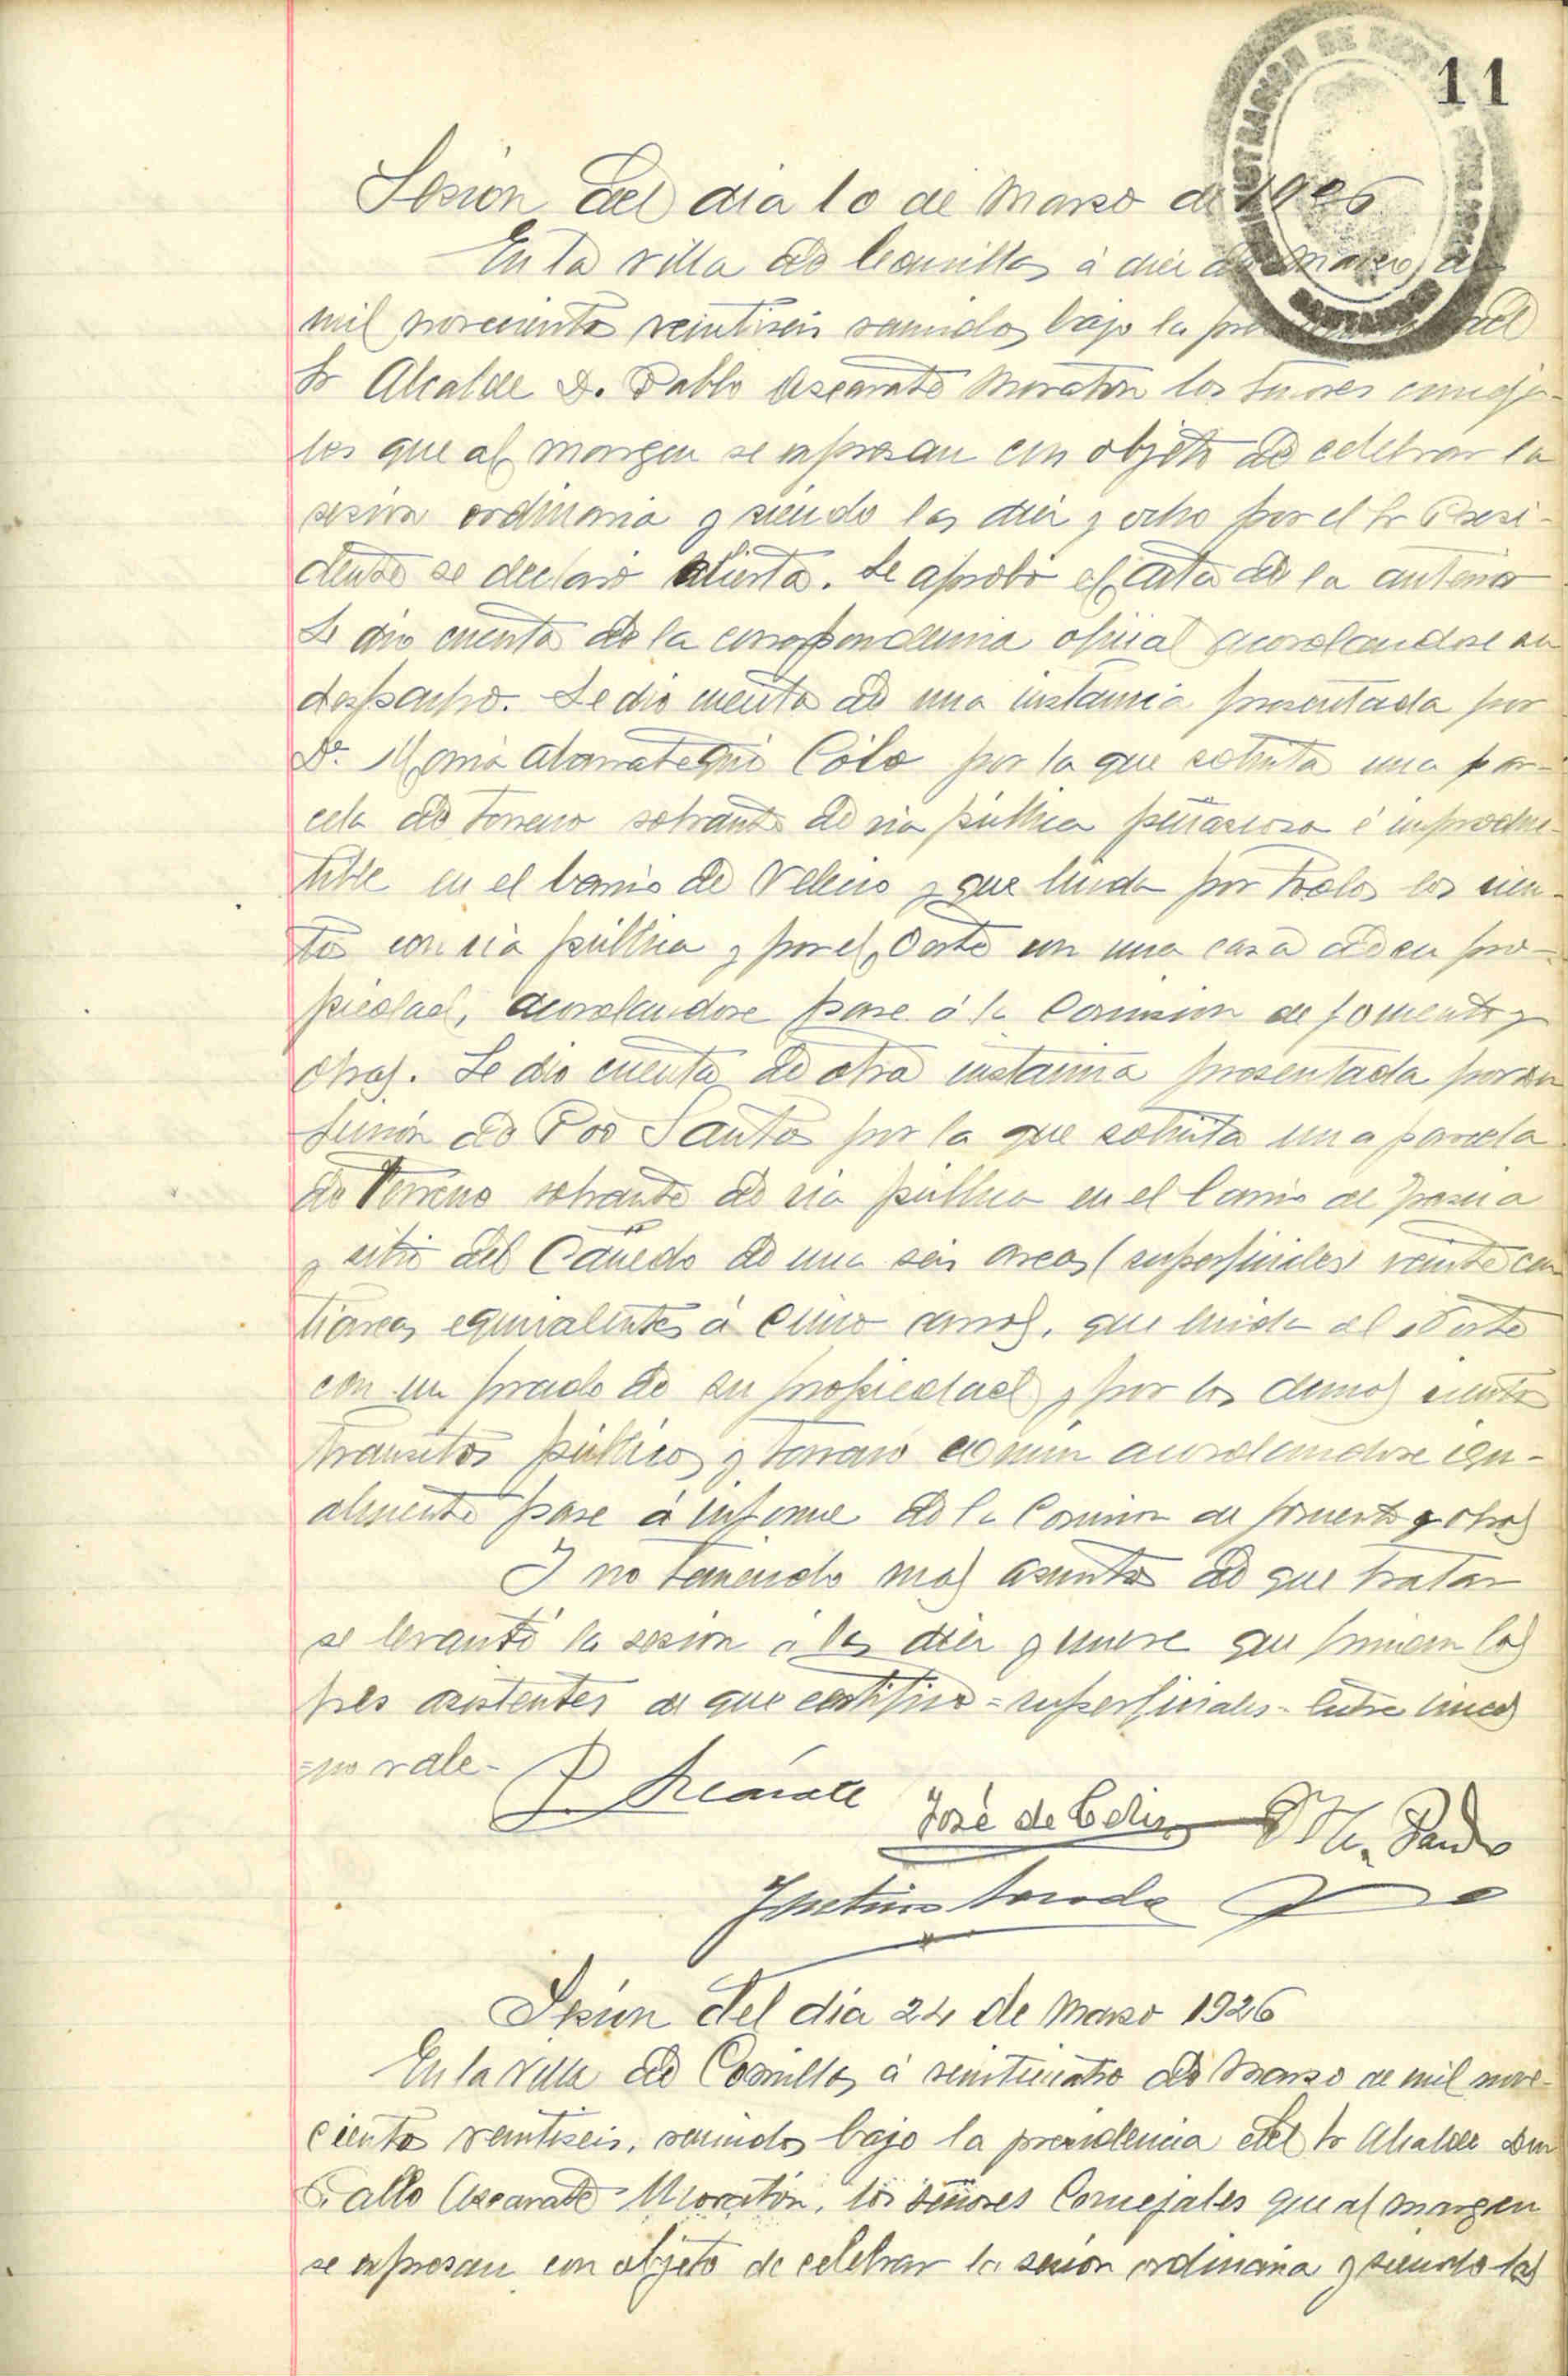 11
Sesión del dia 10 de Marzo de 1926
En la villa de Comillas á diez de Marzo de
mil novecientos veintiseis reunidos bajo la del
Sr Alcalde D. Pablo Ascarate Moratón los señores conceja-
les que al margen se expresan con objeto de celebrar la
sesión ordinaria y siendo las diez y ocho por el Sr Presi-
dente se declaró abierta. Se aprobó el acta de la anterior
Se dio cuenta de la correspondencia oficial acordandose su
despacho. Se dio cuenta de una instancia presentada por
Dª María por la que solicita una par-
cela de terreno sobrante de via pública peñascosa é improduc-
tible en el barrio de Velecio y que linda por todos los vien-
tos con via pública y por el Oeste con una casa de su pro-
piedad, acordandose pase á la Comisión de fomento y
obras. Se dio cuenta de otra instancia presentada por
de Poo Santos por la que solicita una parcela
de Terreno sobrante de via pública en el barrio de
y sitio del Cañedo de una seis areas (superficiales) veinte cen
tiareas equivalentes á cinco carros, que linda al Norte
con un prado de su propiedad y por los demas vientos
transitos públicos y terreno común acordandose igu-
almente pase á informe de la Comision de fomento y obras
Y no teniendo mas asuntos de que tratar
se levantó la sesión á las diez y nueve que firman los
tres asistentes de que certifico = superficiales - Entre lineas
= no vale -
P. Ascárate José de Celis M. Pando
Sesión del dia 24 de Marzo 1926
En la Villa de Comillas á veinticuatro de Marzo de mil nove-
cientos veintiseis, reunidos bajo la presidencia del Sr Alcalde Don
Pablo Ascarate Moratón, los señores Concejales que al margen
se expresan con objeto de celebrar la sesión ordinaria y siendo las